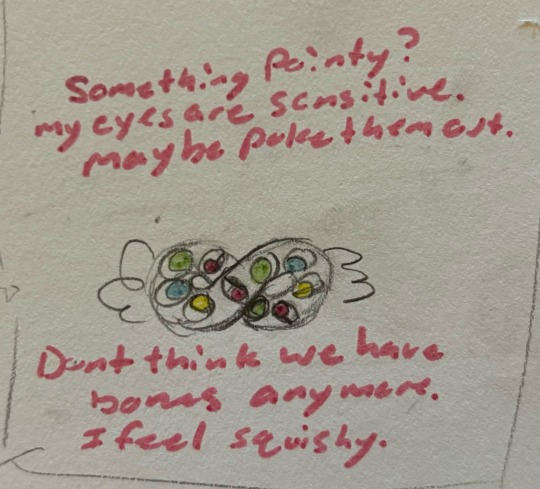 Something Pointy?
my eyes are sensitive.
maybe poke them out.
Dont think we have
bones anymore.
I feel squishy.